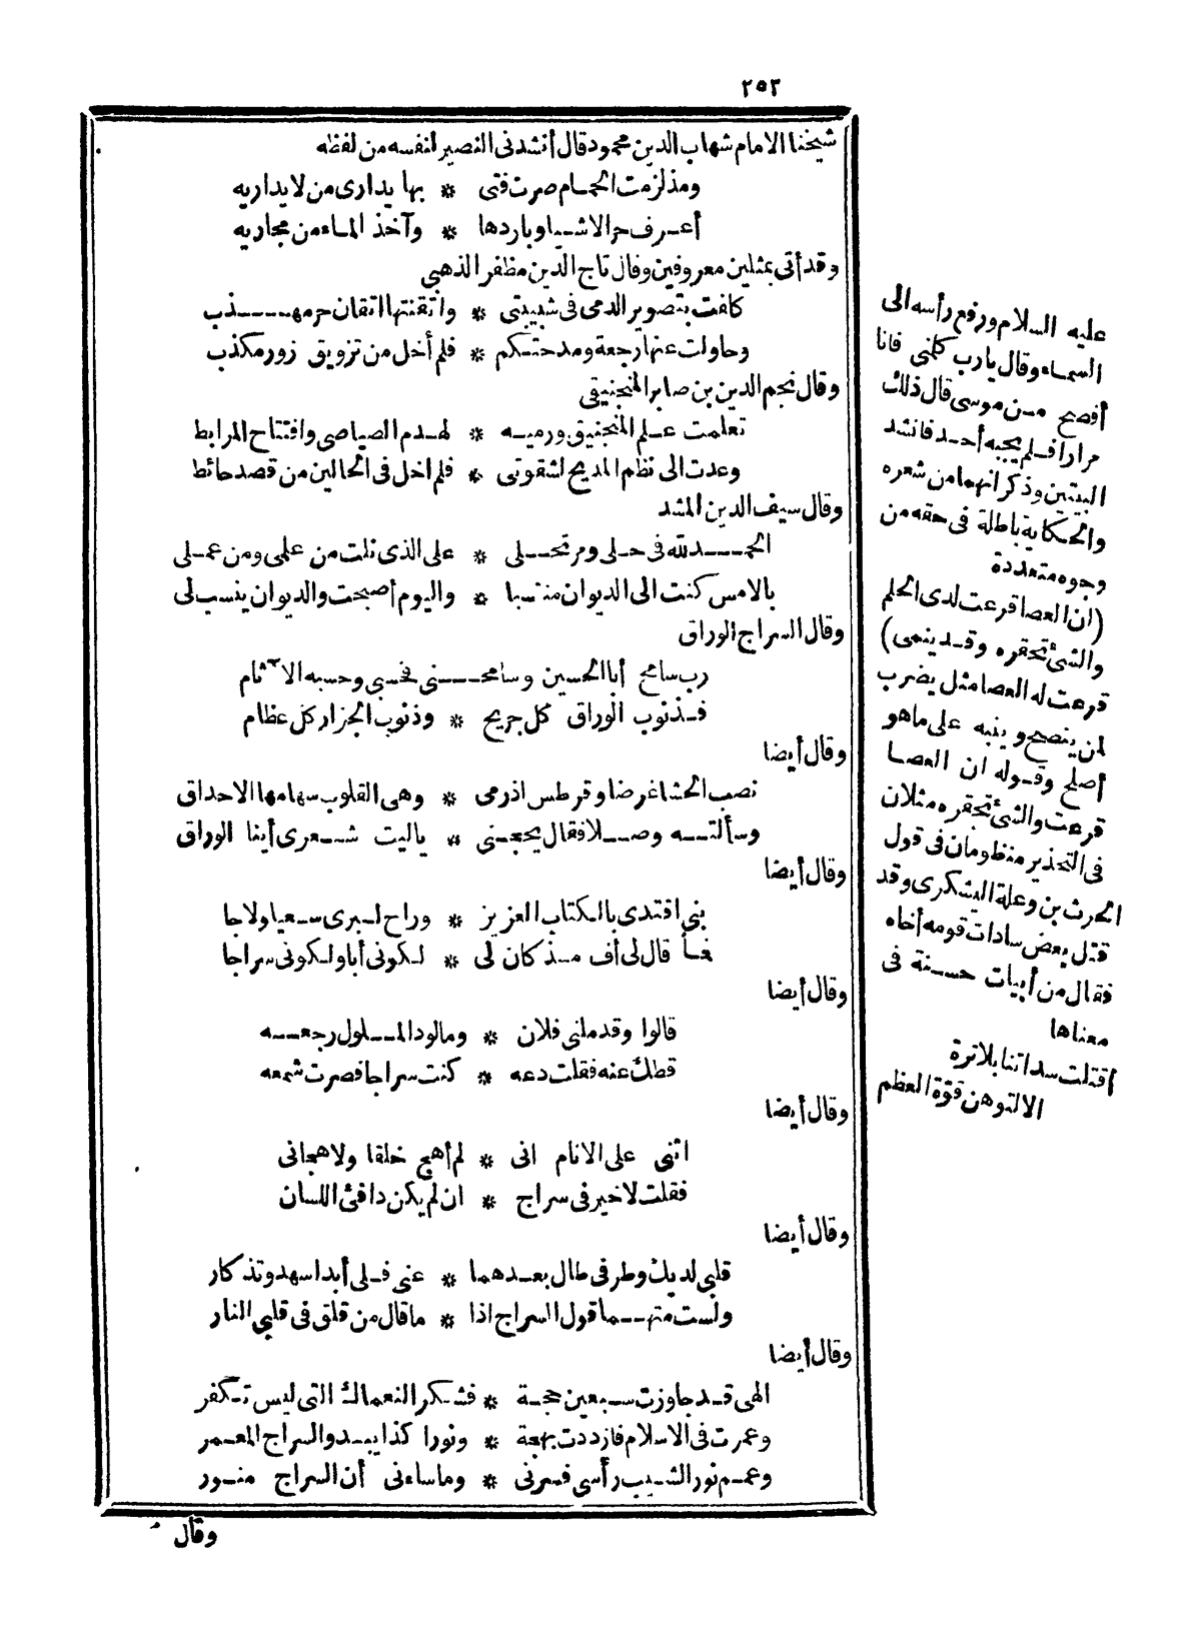 ٢٥٣
شيخنا الامام شهاب الدين محمود قال أنشدنى النصير لنفسه من لفظه
ومذ لزمت الحمام صرت فتى * بها يدارى من لايداريه
أعرف حر الاشيا وباردها * وآخذ الماء من مجاريه
وقد أتى بمثلين معروفين وقال تاج الدين مظفر الذهبى
كلفت بتصوير الدمى فى شبيبتى * واتقنتها اتقان حر مهذب
وحاولت عنها رجعة ومدحتكم * فلم أخل من تزويق زور مكذب
وقال نجم الدين بن صابر المنجنيقى
تعلمت علم المنجنيق ورميه * لهدم الصياصى وافتتاح المرابط
وعدت الى نظم المديح لشقوتى * فلم اخل فى الحالين من قصد حائط
وقال سيف الدين المشد
الحمد لله فى حلى ومرتحلى * على الذى نلت من على ومن عملى
بالامس كنت الى الديوان منتسبا * واليوم أصبحت والديوان ينسب لى
وقال السراج الوراق
رب سامح أبا الحسين وسامحنى فحسبى وحسبه الآثام
فذنوب الوراق كل جريح * وذنوب الجزار كل عظام
وقال أيضا
نصب الحشا غرضا وقرطس اذ رمى * وهى القلوب سهامها الاحداق
وسألته وصلا فقال يحجنى * ياليت شعرى أينا الوراق
وقال أيضا
بنى اقتدى بالكتاب العزيز * وراح لبرى سعيا ولاجا
فما قال لى أف مذ كان لى * لكونى أبا ولكونى سراجا
وقال أيضا
قالوا وقد ملنى فلان * ومالود الملول رجعه
قطك عنه فقلت دعه * كنت سراجا فصرت شمعه
وقال أيضا
اثنى على الانام انى * لم أهج خلقا ولا هجانى
فقلت لاخير فى سراج * ان لم يكن دافئ اللسان
وقال أيضا
قلبى لديك وطرفى طال بعدهما * عنى فلى أبدا سهد وتذكار
ولست متهما قول السراج اذا * ماقال من قلق فى قلبى النار
وقال أيضا
الهى قد جاوزت سبعين حجة * فشكرا لنعماك التى ليس تكفر
وعمرت فى الاسلام فازددت بهجة * ونورا كذا يبدو السراج المعمر
وعمم نور الشيب رأسى فسرنى * وماساءنى أن السراج منور
وقال
عليه السلام ورفع رأسه الى
السماء وقال يارب كلمنى فانا
أفصح من موسى قال ذلك
مرارا فلم يجبه أحد فانشد
البيتين وذكر انهما من شعره
والحكاية باطلة فى حقه من
وجوه متعددة
(ان العصا قرعت لدى الحلم
والشئ تحقره وقد ينمى)
قرعت له العصا مثل يضرب
لمن ينصح وينبه على ماهو
أصلح وقوله ان العصا
قرعت والشئ تحقره مثلان
فى التحذير منظومان فى قول
الحرث بن وعلة اليشكرى وقد
قتل بعض سادات قومه أخاه
فقال من أبيات حسنة فى
معناها
اقتلت سداتنا بلاترة
الا لتوهن قوة العظم